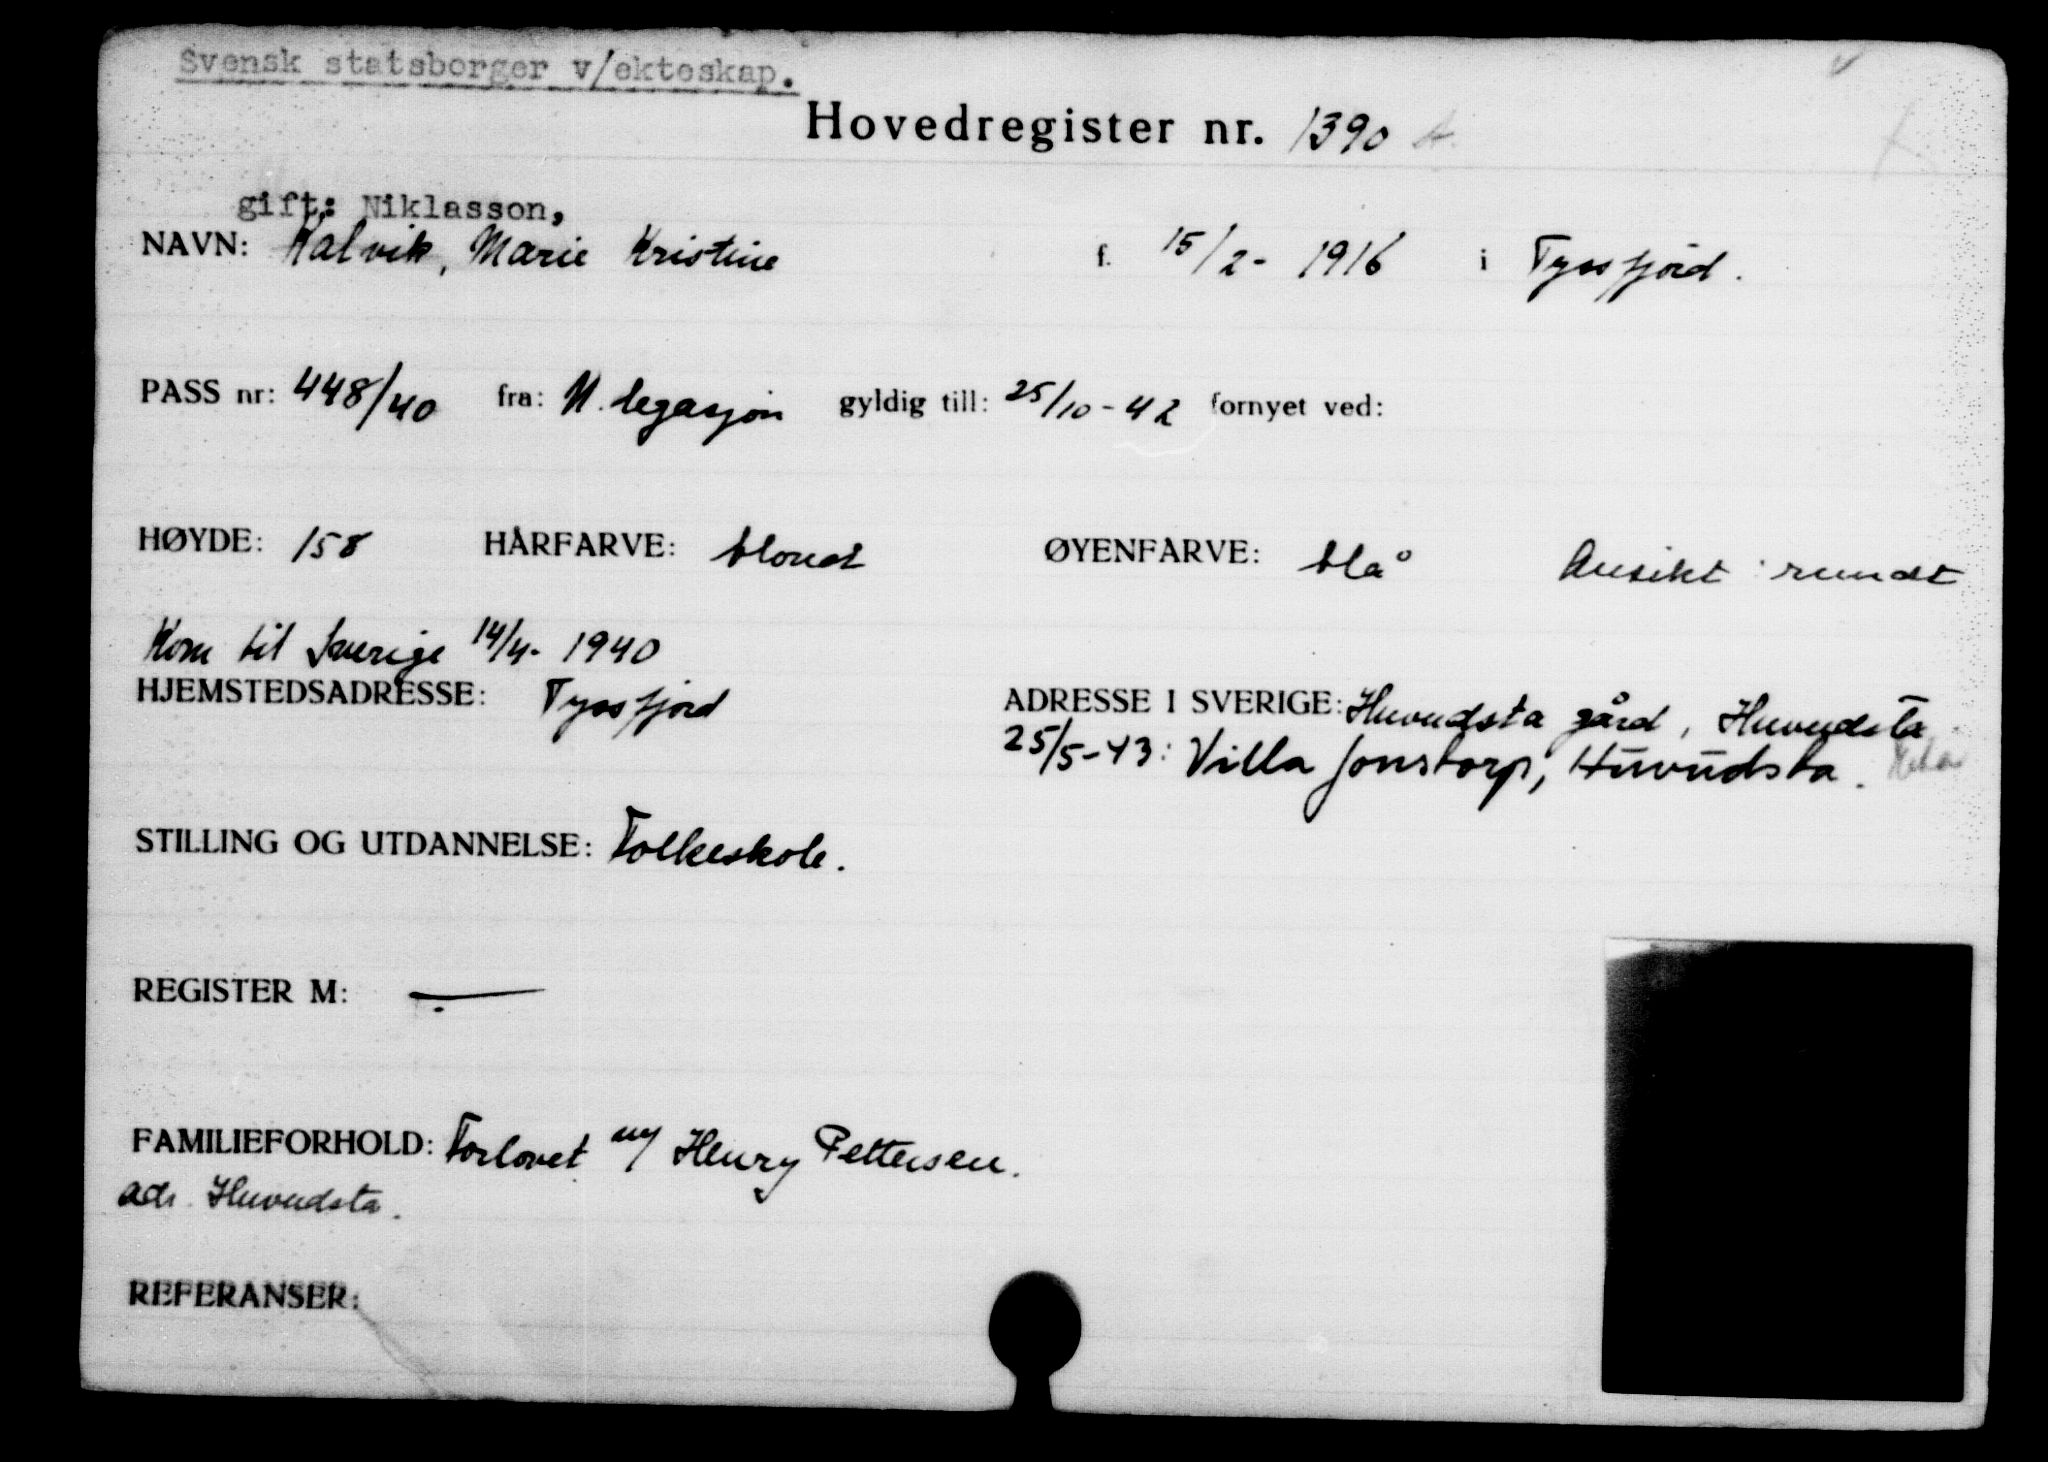 Svensk statsborger v/ekteskap.
Hovedregister nr. 1390 A.
gift: Niklasson,
NAVN: Kalvik, Marie Kristine f. 15/2- 1916 i Tyssfjord.
PASS nr: 448/40 fra: N. legasjon gyldig till: 25/10-42 fornyet ved:
HØYDE: 158 HÅRFARVE: blond ØYENFARVE: blå Ansikt: rundt
Kom til Sverige 14/4- 1940
HJEMSTEDSADRESSE: Tyssfjord ADRESSE I SVERIGE: Huvudsta gård, Huvudsta
25/5-43: Villa Jonstorp, Huvudsta.
STILLING OG UTDANNELSE: Folkeskole.
REGISTER M: —
FAMILIEFORHOLD: Forlovet m/ Henry Pettersen.
adr. Huvudsta.
REFERANSER: